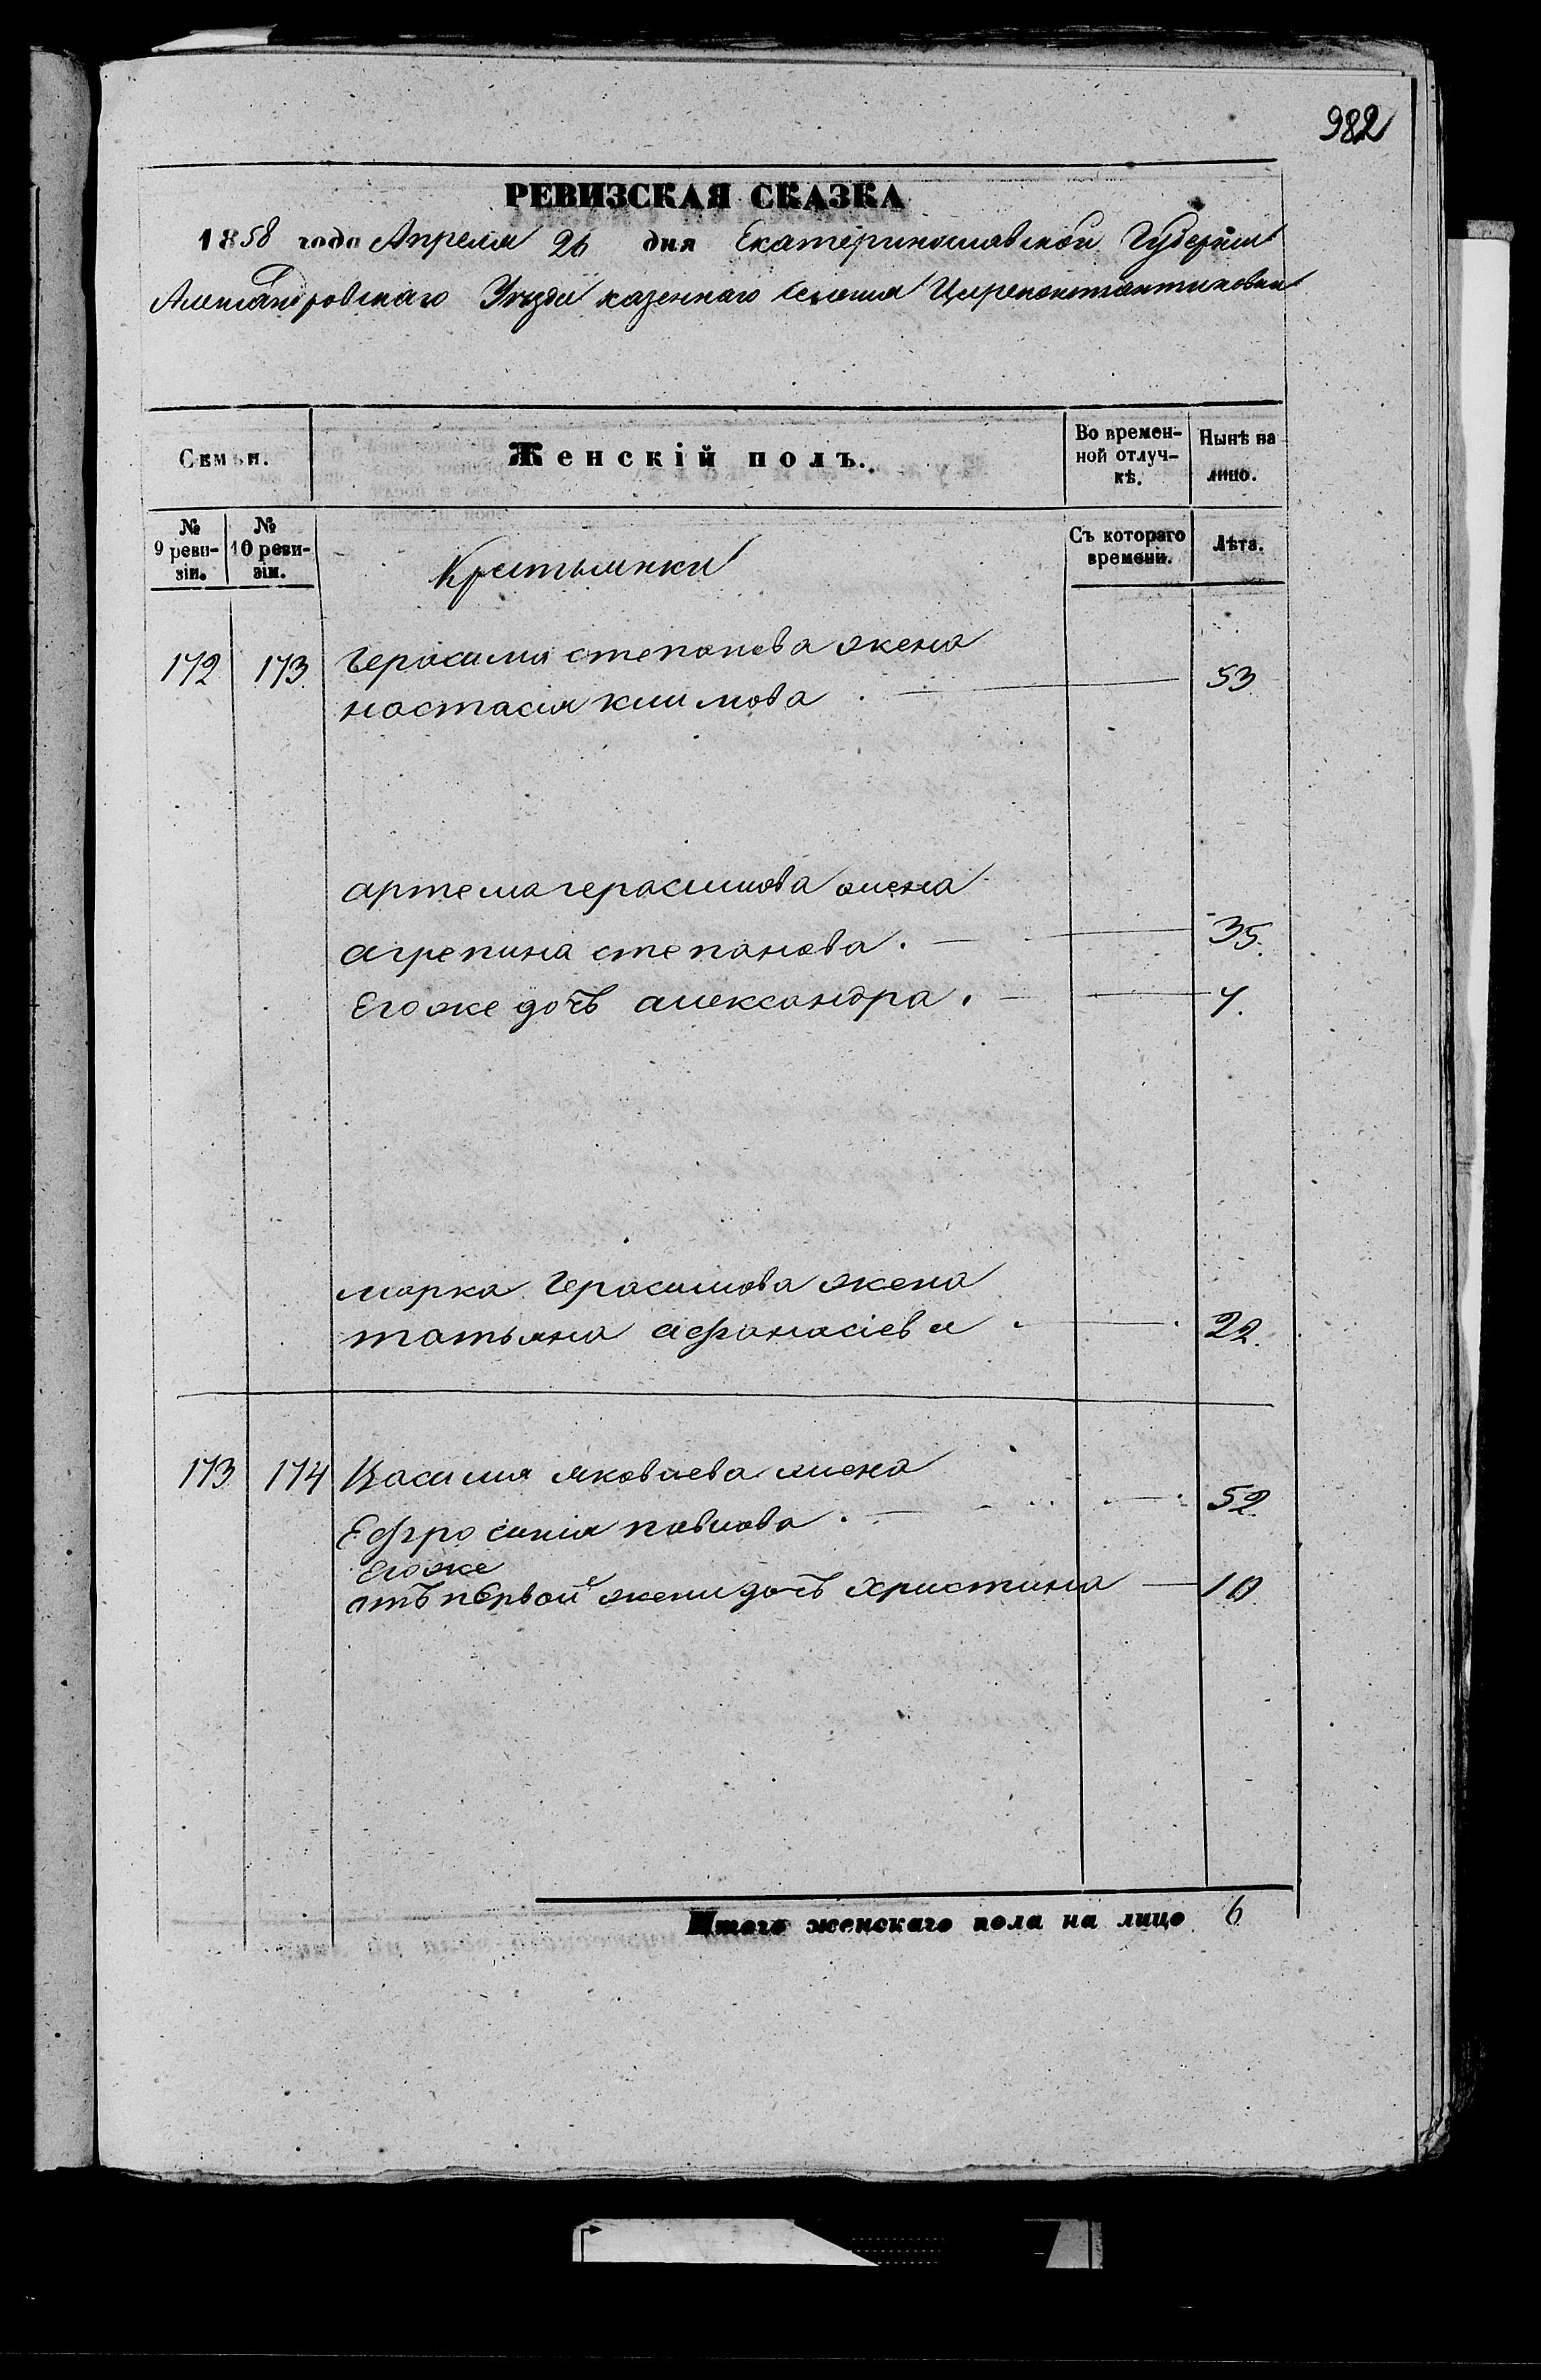 982
РЕВИЗСКАЯ СКАЗКА
1858 года Апреля 26 дня Екатеринославской Губернiи
Александровскаго Уезда казеннаго Селенiя Цареконстантиновки
Семьи.
Женскiй полъ.
Во времен-
ной отлуч-
кѣ.
Нынѣ на
лицо.
№
9 реви-
зiи.
№
10 реви-
зiи.
Крестьянки
Съ котораго
времени.
Лѣта.
172 173 Герасима степанова жена
настасiя климова 53
артема герасимова жена
агрепина степанова. 35.
Его же дочь александра.
марка Герасимова жена
татьяна афанасiева 22.
173 174 Василия яковлева жена
Ефросинiя павлова. 52
Егоже
отъ первой жени дочъ христина 10
Итого женскаго пола на лицо 6